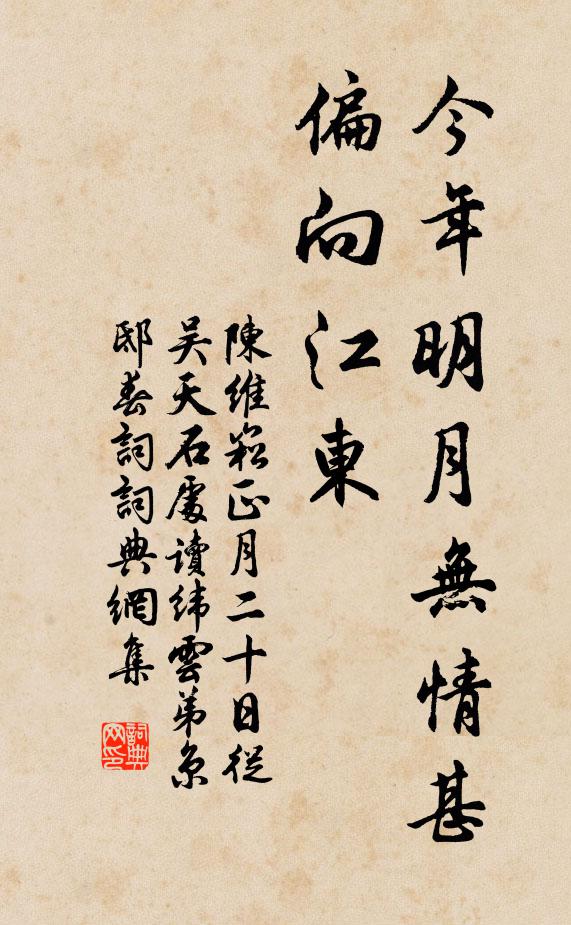 今年明月無情甚
偏向江東
陳維崧正月二十日從
吴天石處讀緯雲弟京
邸春詞詞典網集
詞典网印